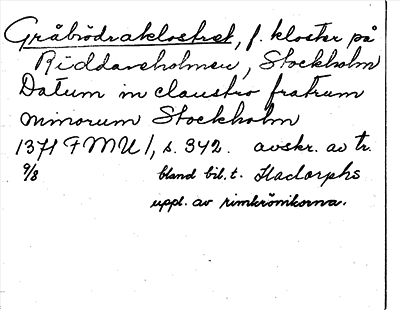 Gråbrödraklostret, f. kloster på
Riddareholmen, Stockholm
Datum in claustro fratrum
minorum Stockholm
1371 FMU 1, s. 342. avskr. av tr.
9/8 bland bil. t. Hadorphs
uppl. av rimkrönikorna.